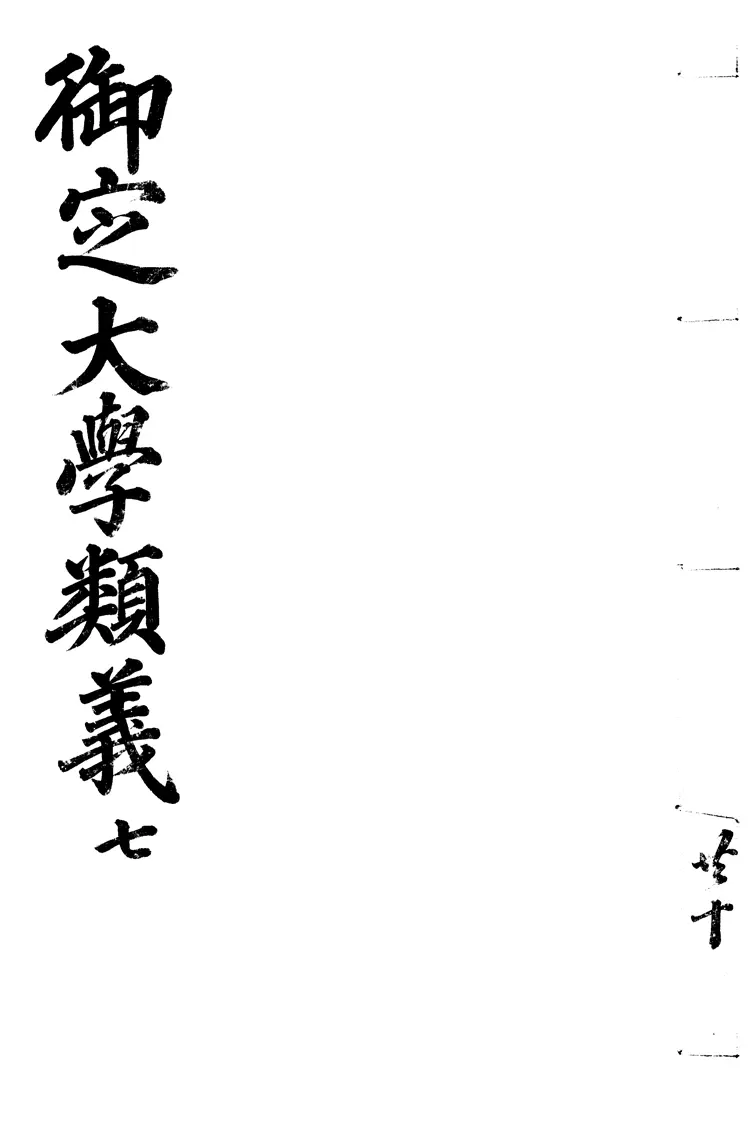 共十
御定大學類義 七